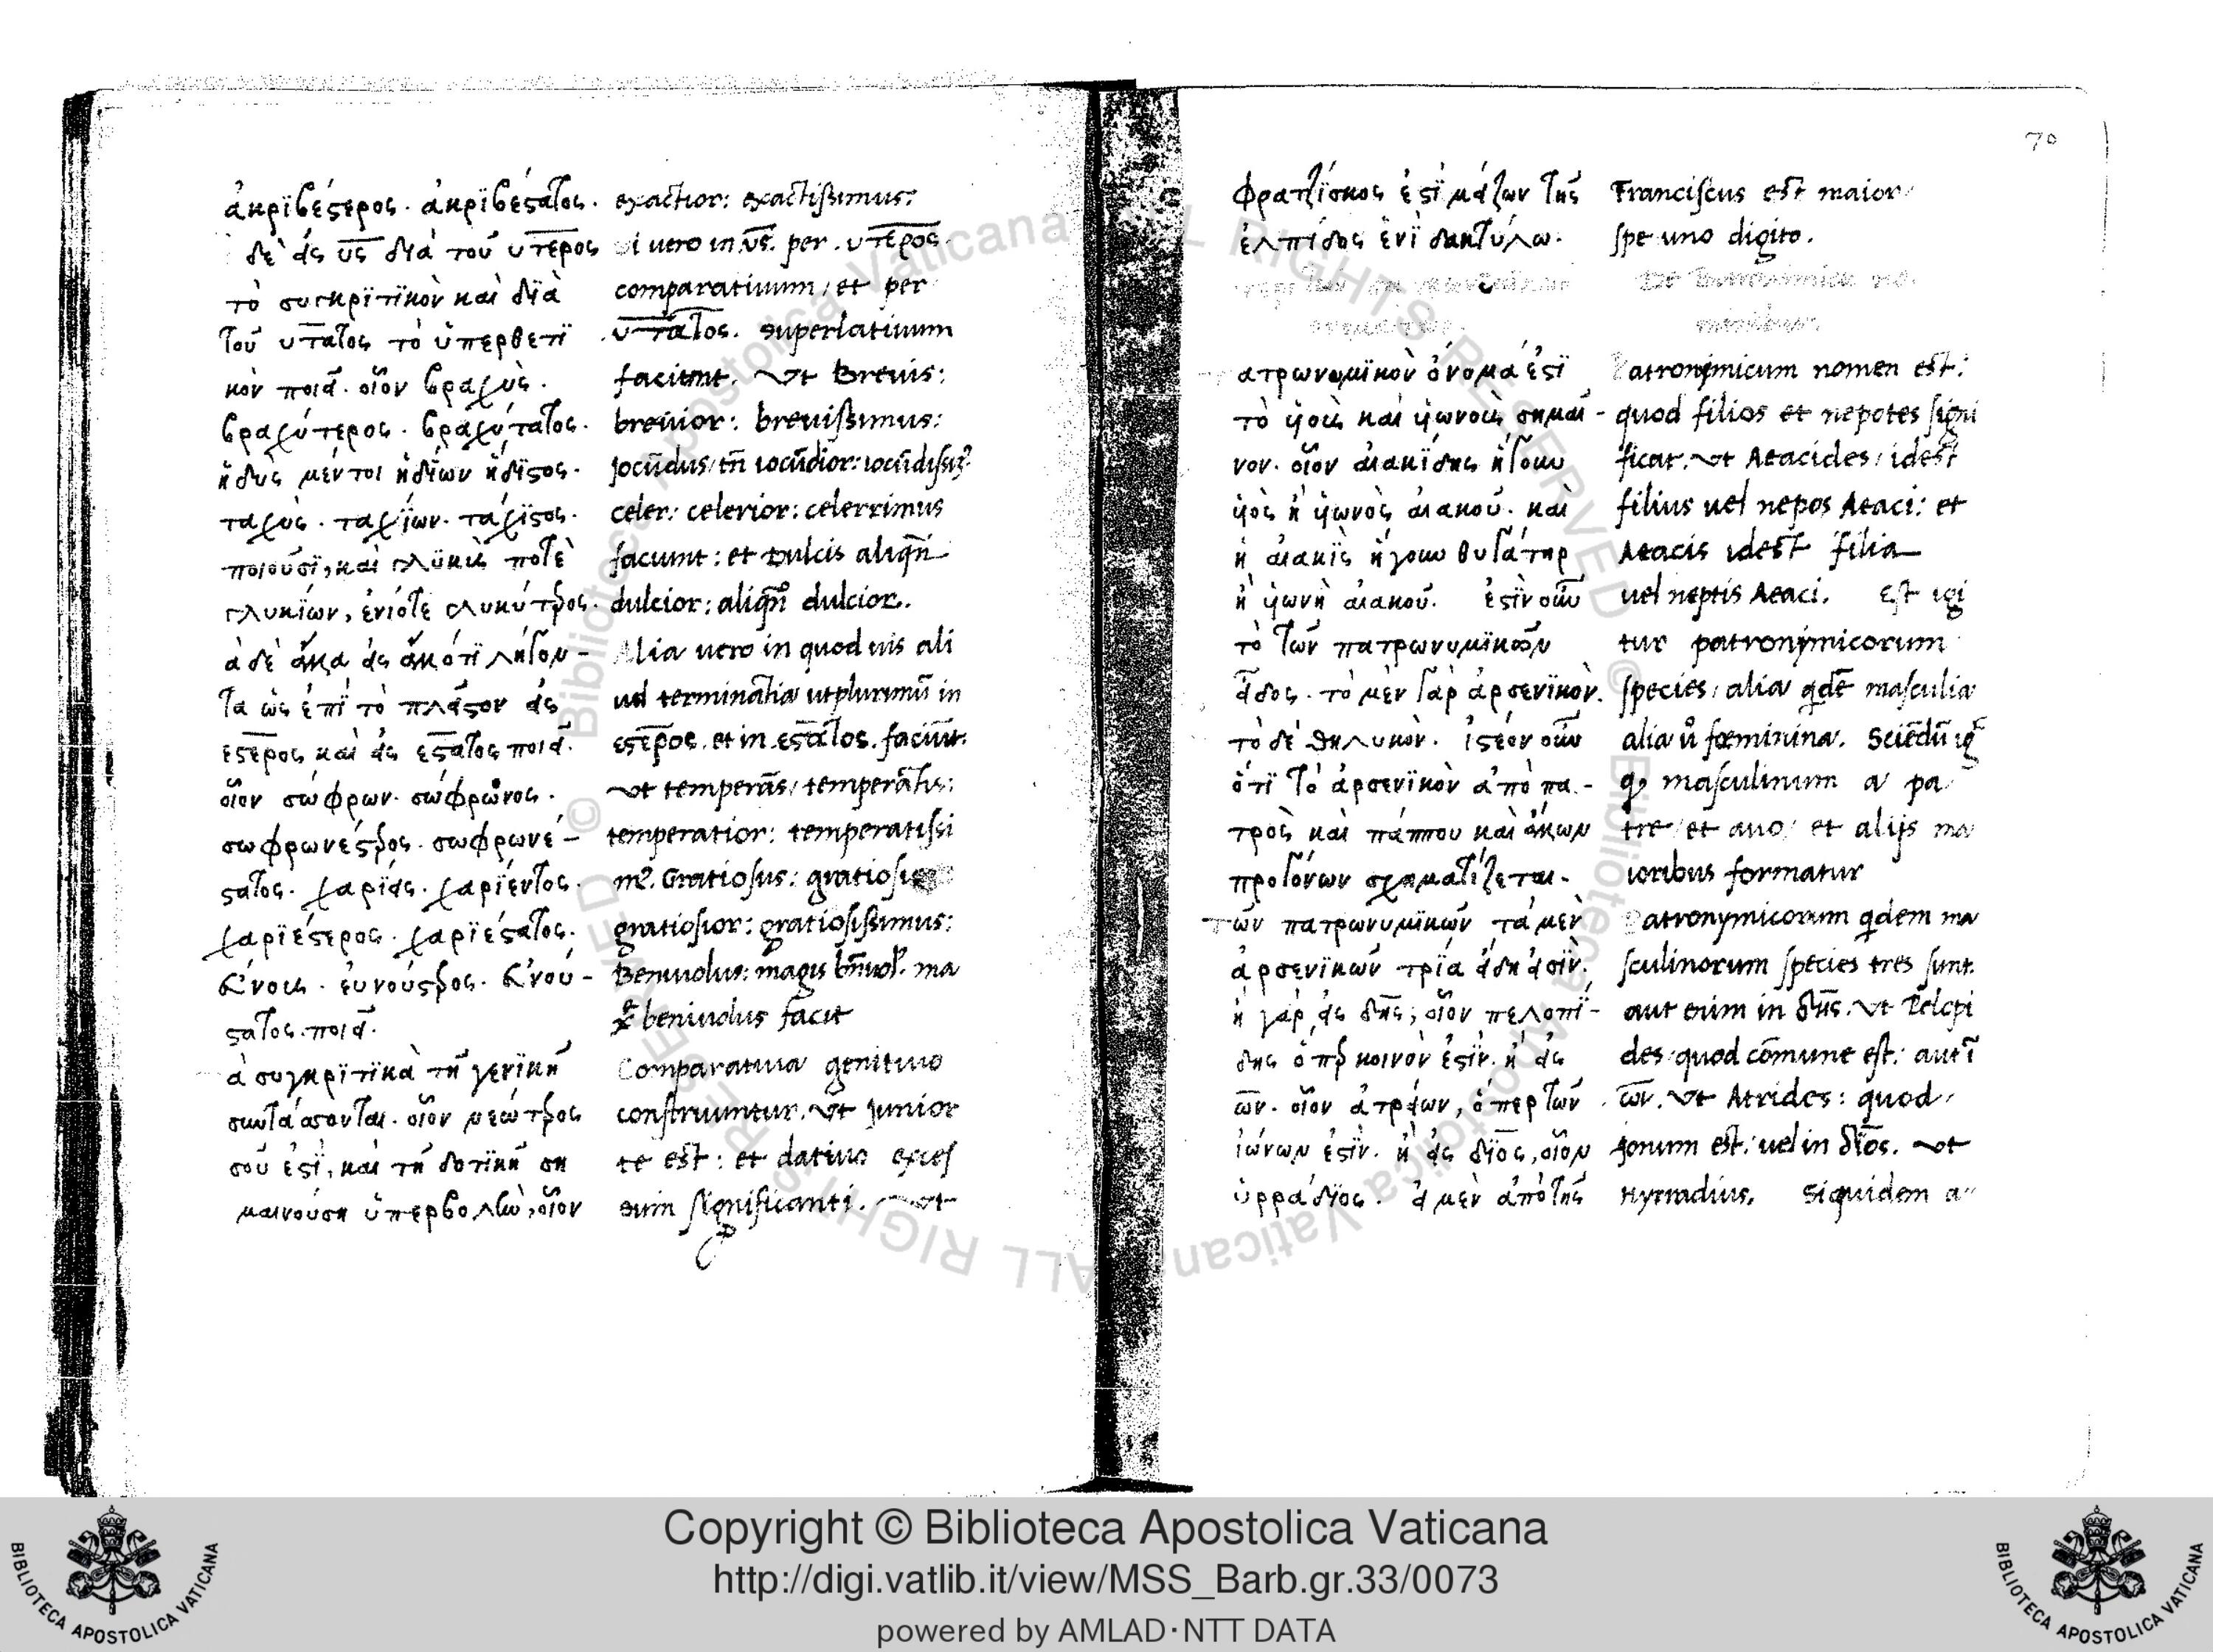 ἀκριβέστερος· ἀκριβέστατος·
δὲ εἰς υς διὰ τοῦ υτερος
τὸ συγκριτικὸν καὶ διὰ
τοῦ υτατος τὸ ὑπερθετι
κὸν ποιεῖ· οἷον βραχὺς·
βραχύτερος· βραχύτατος·
ἡδὺς μέντοι ἡδίων ἥδιστος·
ταχὺς· ταχίων· τάχιστος·
ποιοῦσι, καὶ γλυκὺς ποτὲ
γλυκίων, ἐνίοτε γλυκύτερος·
ὰ δὲ ἄλλα εἰς ἄλλό τι λήγον-
τα ὡς ἐπὶ τὸ πλεῖστον εἰς
εστερος καὶ εἰς εστατος ποιεῖ·
οἷον σώφρων· σώφρωνος·
σωφρωνέστερος· σωφρωνέ-
στατος· χαρίεις· χαρίεντος·
χαριέστερος· χαριέστατος·
εὔνους· εὐνούστερος· εὐνού-
στατος· ποιεῖ·
ὰ συγκριτικὰ τῇ γενικῇ
συντάσσονται· οἷον νεώτερος
σοῦ ἐστὶ, καὶ τῇ δοτικῇ ση
μαινούσῃ ὑπερβολὴν, οἷον
exactior: exactissimus:
i uero in υς. per. υτερος.
comparatiuum, et per
υτατος. superlatiuum
faciunt. Vt Breuis:
breuior: breuissimus:
Jocūdus, tn̄ iocūdior: iocūdissꝰ
celer: celerior: celerrimus
faciunt: et Dulcis aliqn̄
dulcior: aliqn̄ dulcior.
Alia uero in quod uis ali
ud terminātia utplurimū in
εστερος. et in εστατος. faciūt.
Vt temperās, temperātis:
temperatior: temperatissi
mꝰ. Gratiosus: gratiosi
gratiosior: gratiosissimus:
Beniuolus: magis bn̄iuolꝰ. ma
xe beniuolus facit
Comparatiua genitiuo
construuntur. Vt Junior
te est: et datiuo exces
sum significanti. Vt
70
Φραντζίσκος ἐστὶ μείζων τῆς
ἐλπίδος ἑνὶ δακτύλῳ.
ατρωνυμικὸν ὄνομα ἐστὶ
τὸ ὑιοὺς καὶ ὑιωνοὺς σημαῖ-
νον· οἷον αἰακίδης ἤγουν
ὑιὸς ἢ ὑιωνὸς αἰακοῦ· καὶ
ἡ αἰακὶς ἤγουν θυγάτηρ
ἢ ὑιωνὴ αἰακοῦ. ἐστὶν οὖν
τὸ τῶν πατρωνυμικῶν
εἶδος· τὸ μὲν γὰρ ἀρσενικὸν·
τὸ δὲ θηλυκὸν. ἰστέον οὖν
ὅτι τὸ ἀρσενικὸν ἀπὸ πα-
τρὸς καὶ πάππου καὶ ἄλλων
προγόνων σχηματίζεται.
τῶν πατρωνυμικῶν τὰ μὲν
ἀρσενικῶν τρία εἴδη εἰσὶν·
ἢ γὰρ εἰς δης, οἷον πελοπί-
δης ὅπερ κοινὸν ἐστὶν· ἢ εἰς
ων· οἷον ἀτρείων, ὅπερ τῶν
ἰώνων ἐστὶν· ἢ εἰς διος, οἷον
ὑρράδιος. εἰ μὲν ἀπὸ τῆς
Franciscus est maior
spe uno digito.
Patronymicum nomen est:
quod filios et nepotes signi
ficat. Vt Aeacides, idest
filius uel nepos Aeaci: et
Aeacis idest filia
uel neptis Aeaci. Est igi
tur patronymicorum
species, alia qdē masculia
alia ů fœminina. Sciēdū igͤ
qꝫ masculinum a pa
tre, et auo, et alijs ma
ioribus formatur
Patronymicorum qdem ma
sculinorum species tres sunt.
aut enim in δης. Vt Pelopi
des, quod cōmune est: aut ī
ων. Vt Atrides: quod
Jonum est: uel in διος. Vt
Hyrradius. Siquidem a
Copyright © Biblioteca Apostolica Vaticana
http://digi.vatlib.it/view/MSS_Barb.gr.33/0073
powered by AMLAD·NTT DATA
BIBLIOTECA APOSTOLICA VATICANA
BIBLIOTECA APOSTOLICA VATICANA